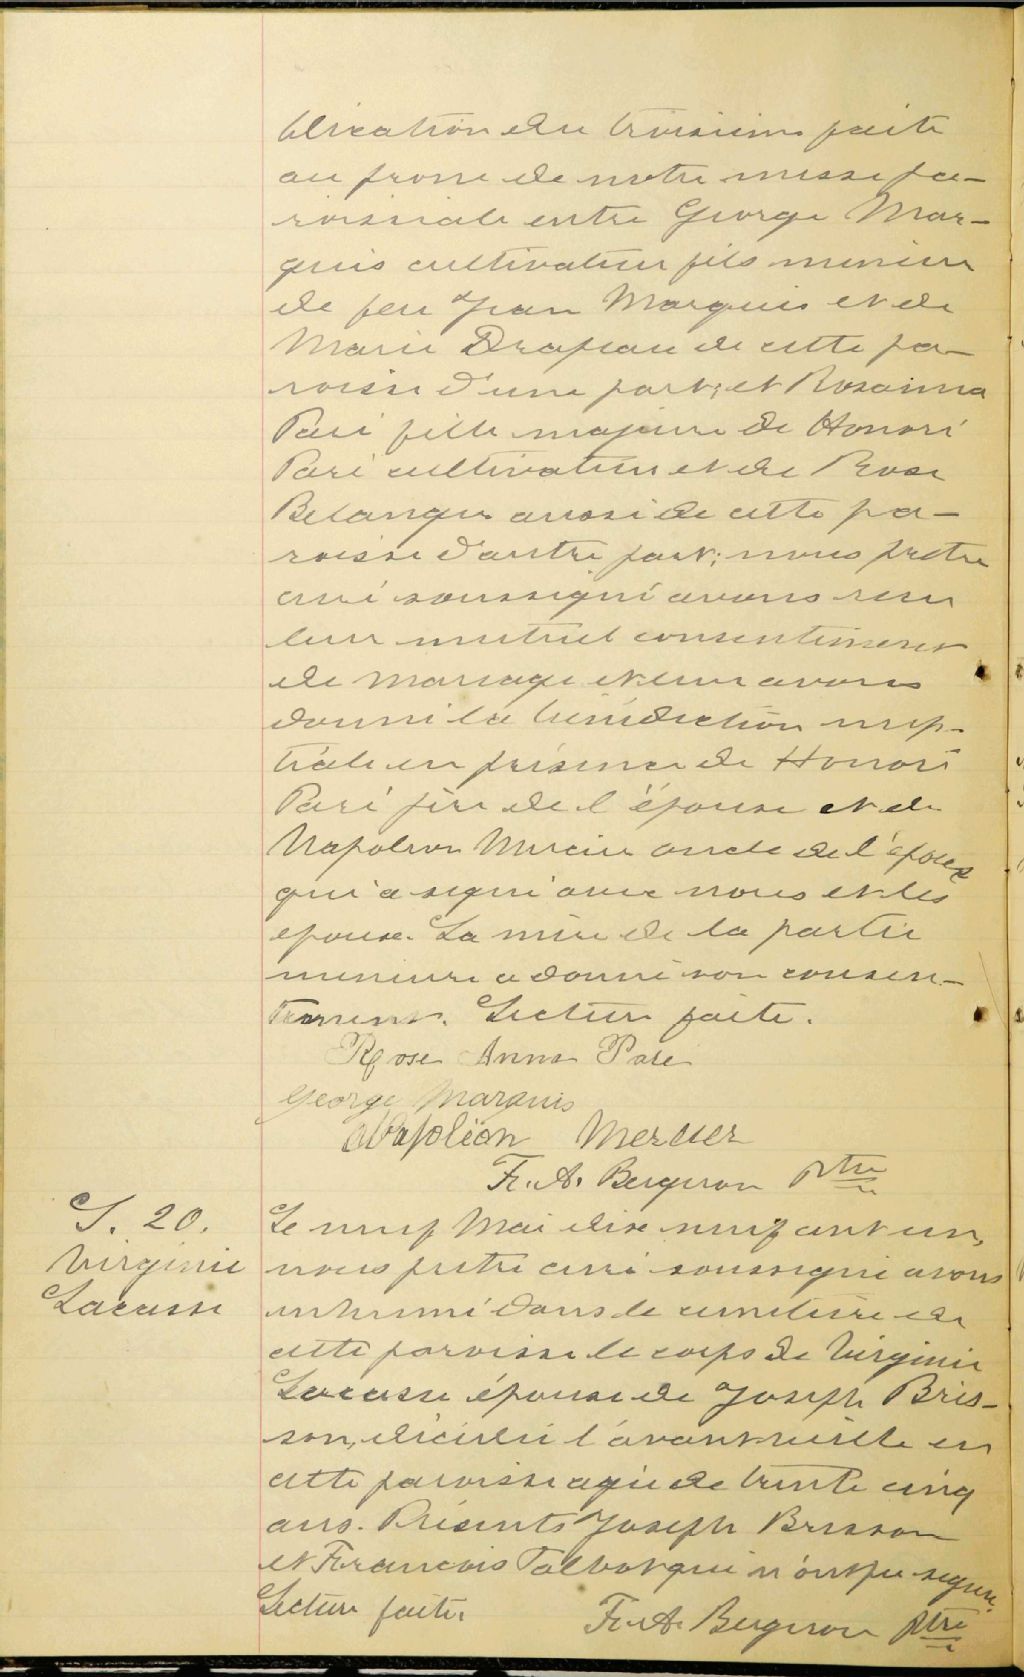 blication du troisième faite
au prone de notre messe pa-
roissiale entre George Mar-
quis cultivateur fils mineur
de feu Jean Marquis et de
Marie Drapeau de cette pa-
roisse d'une part; et Rosanna
Paré fille majeure de Honoré
Paré cultivateur et de Rose
Belanger aussi de cette pa-
roisse d'autre part; nous prêtre
curé soussigné avons reçu
leur mutuel consentement
de mariage et leur avons
donné la bénédiction nup-
tiale en présence de Honoré
Paré père de l'épouse et de
Napoléon Mercier oncle de l'époux
qui a signé avec nous et les
epoux. La mère de la partie
mineure a donné son consen-
tement. Lecture faite.
Rose Anna Paré
George Marquis
Napoléon Mercier
Fr. A. Bergeron Ptre
S. 20.
Virginie
Lacasse
Le neuf Mai dix neuf cent un,
nous prêtre curé soussigné avons
inhumé dans le cimetière de
cette paroisse le corps de Virginie
Lacasse épouse de Joseph Bris-
son, décédée l'avant veille en
cette paroisse agée de trente cinq
ans. Présents Joseph Brisson
et Francois Talbot qui n'ont pu signer.
Lecture faite.
Fr. A. Bergeron ptre